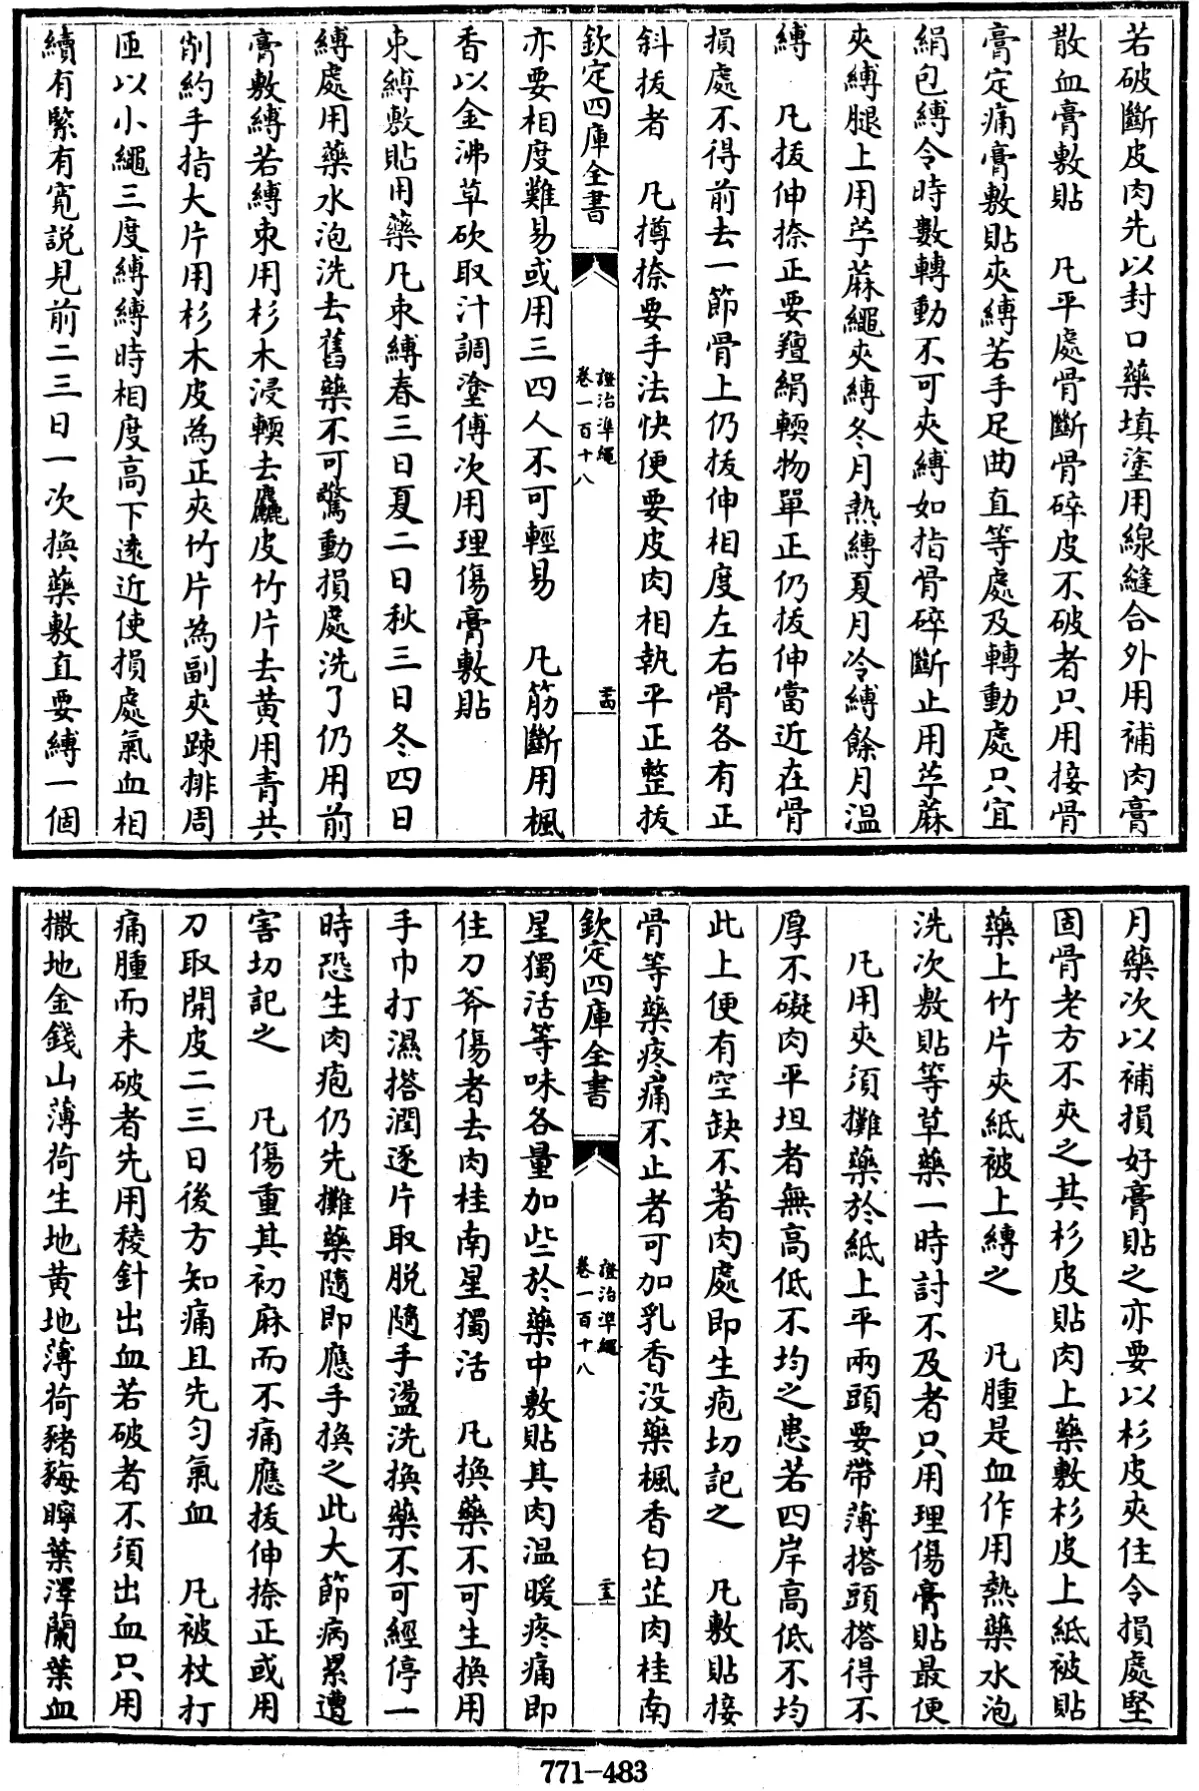 若破斷皮肉先以封口藥填塗用線縫合外用補肉膏
散血膏敷貼　凡平處骨斷骨碎皮不破者只用接骨
膏定痛膏敷貼夾縛若手足曲直等處及轉動處只宜
絹包縛令時數轉動不可夾縛如指骨碎斷止用苧蔴
夾縛腿上用苧蔴繩夾縛冬月熱縛夏月冷縛餘月温
縛　凡拔伸捺正要䊲絹輭物單正仍拔伸當近在骨
損處不得前去一節骨上仍拔伸相度左右骨各有正
斜拔者　凡撙捺要手法快便要皮肉相執平正整拔
欽定四庫全書
證治準繩
卷一百十八
亦要相度難易或用三四人不可輕易　凡筋斷用楓
香以金沸草砍取汁調塗傅次用理傷膏敷貼
束縛敷貼用藥凡束縛春三日夏二日秋三日冬四日
縛處用藥水泡洗去舊藥不可驚動損處洗了仍用前
膏敷縛若縛束用杉木浸輭去麤皮竹片去黄用青共
削約手指大片用杉木皮為正夾竹片為副夾踈排周
匝以小繩三度縛縛時相度高下逺近使損處氣血相
續有緊有寛説見前二三日一次換藥敷直要縛一個
月藥次以補損好膏貼之亦要以杉皮夾住令損處堅
固骨老方不夾之其杉皮貼肉上藥敷杉皮上紙被貼
藥上竹片夾紙被上縛之　凡腫是血作用熱藥水泡
洗次敷貼等草藥一時討不及者只用理傷膏貼最便
凡用夾須攤藥於紙上平兩頭要帶薄搭頭搭得不
厚不礙肉平坦者無高低不均之患若四岸高低不均
此上便有空缺不著肉處即生疱切記之　凡敷貼接
骨等藥疼痛不止者可加乳香没藥楓香白芷肉桂南
欽定四庫全書
證治準繩
卷一百十八
星獨活等味各量加些於藥中敷貼其肉温暖疼痛即
住刀斧傷者去肉桂南星獨活　凡換藥不可生換用
手巾打濕搭潤逐片取脱隨手盪洗換藥不可經停一
時恐生肉疱仍先攤藥隨即應手換之此大節病累遭
害切記之　凡傷重其初麻而不痛應拔伸捺正或用
刀取開皮二三日後方知痛且先匀氣血　凡被杖打
痛腫而未破者先用稜針出血若破者不須出血只用
撒地金錢山薄荷生地黄地薄荷豬𤘘聹葉澤蘭葉血
771-483